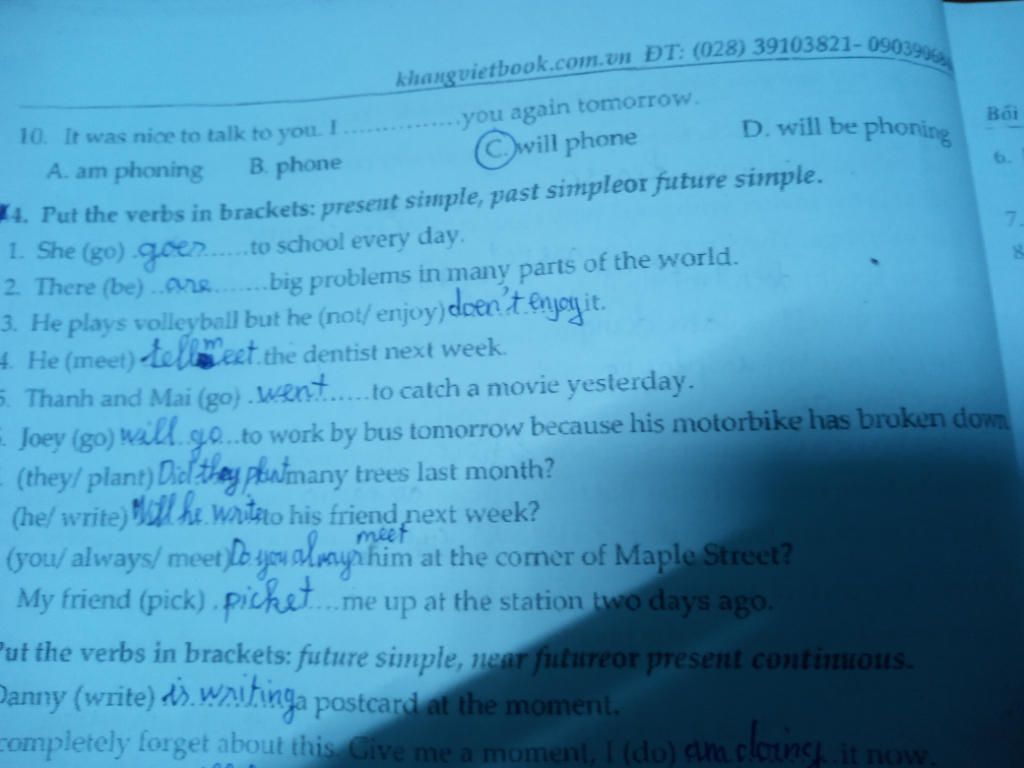 khangvietbook.com.vn ĐT: (028) 39103821-
10. It was nice to talk to you. I ................you again tomorrow.
A. am phoning B. phone C. will phone D. will be phoning
4. Put the verbs in brackets: present simple, past simpleor future simple.
1. She (go) .goes.......to school every day.
2. There (be) ..are........big problems in many parts of the world.
3. He plays volleyball but he (not/ enjoy) doen't enjoy it.
4. He (meet) meet.the dentist next week.
5. Thanh and Mai (go) .went.....to catch a movie yesterday.
Joey (go) will go...to work by bus tomorrow because his motorbike has broken down
(they/ plant) Did they plant many trees last month?
(he/ write) Will he write to his friend next week?
(you/ always/ meet) Do you always meet him at the corner of Maple Street?
My friend (pick) .picket....me up at the station two days ago.
Put the verbs in brackets: future simple, near futureor present continuous.
Danny (write) is writing a postcard at the moment.
completely forget about this. Give me a moment, I (do) am doing it now.
Bối
6.
7.
8